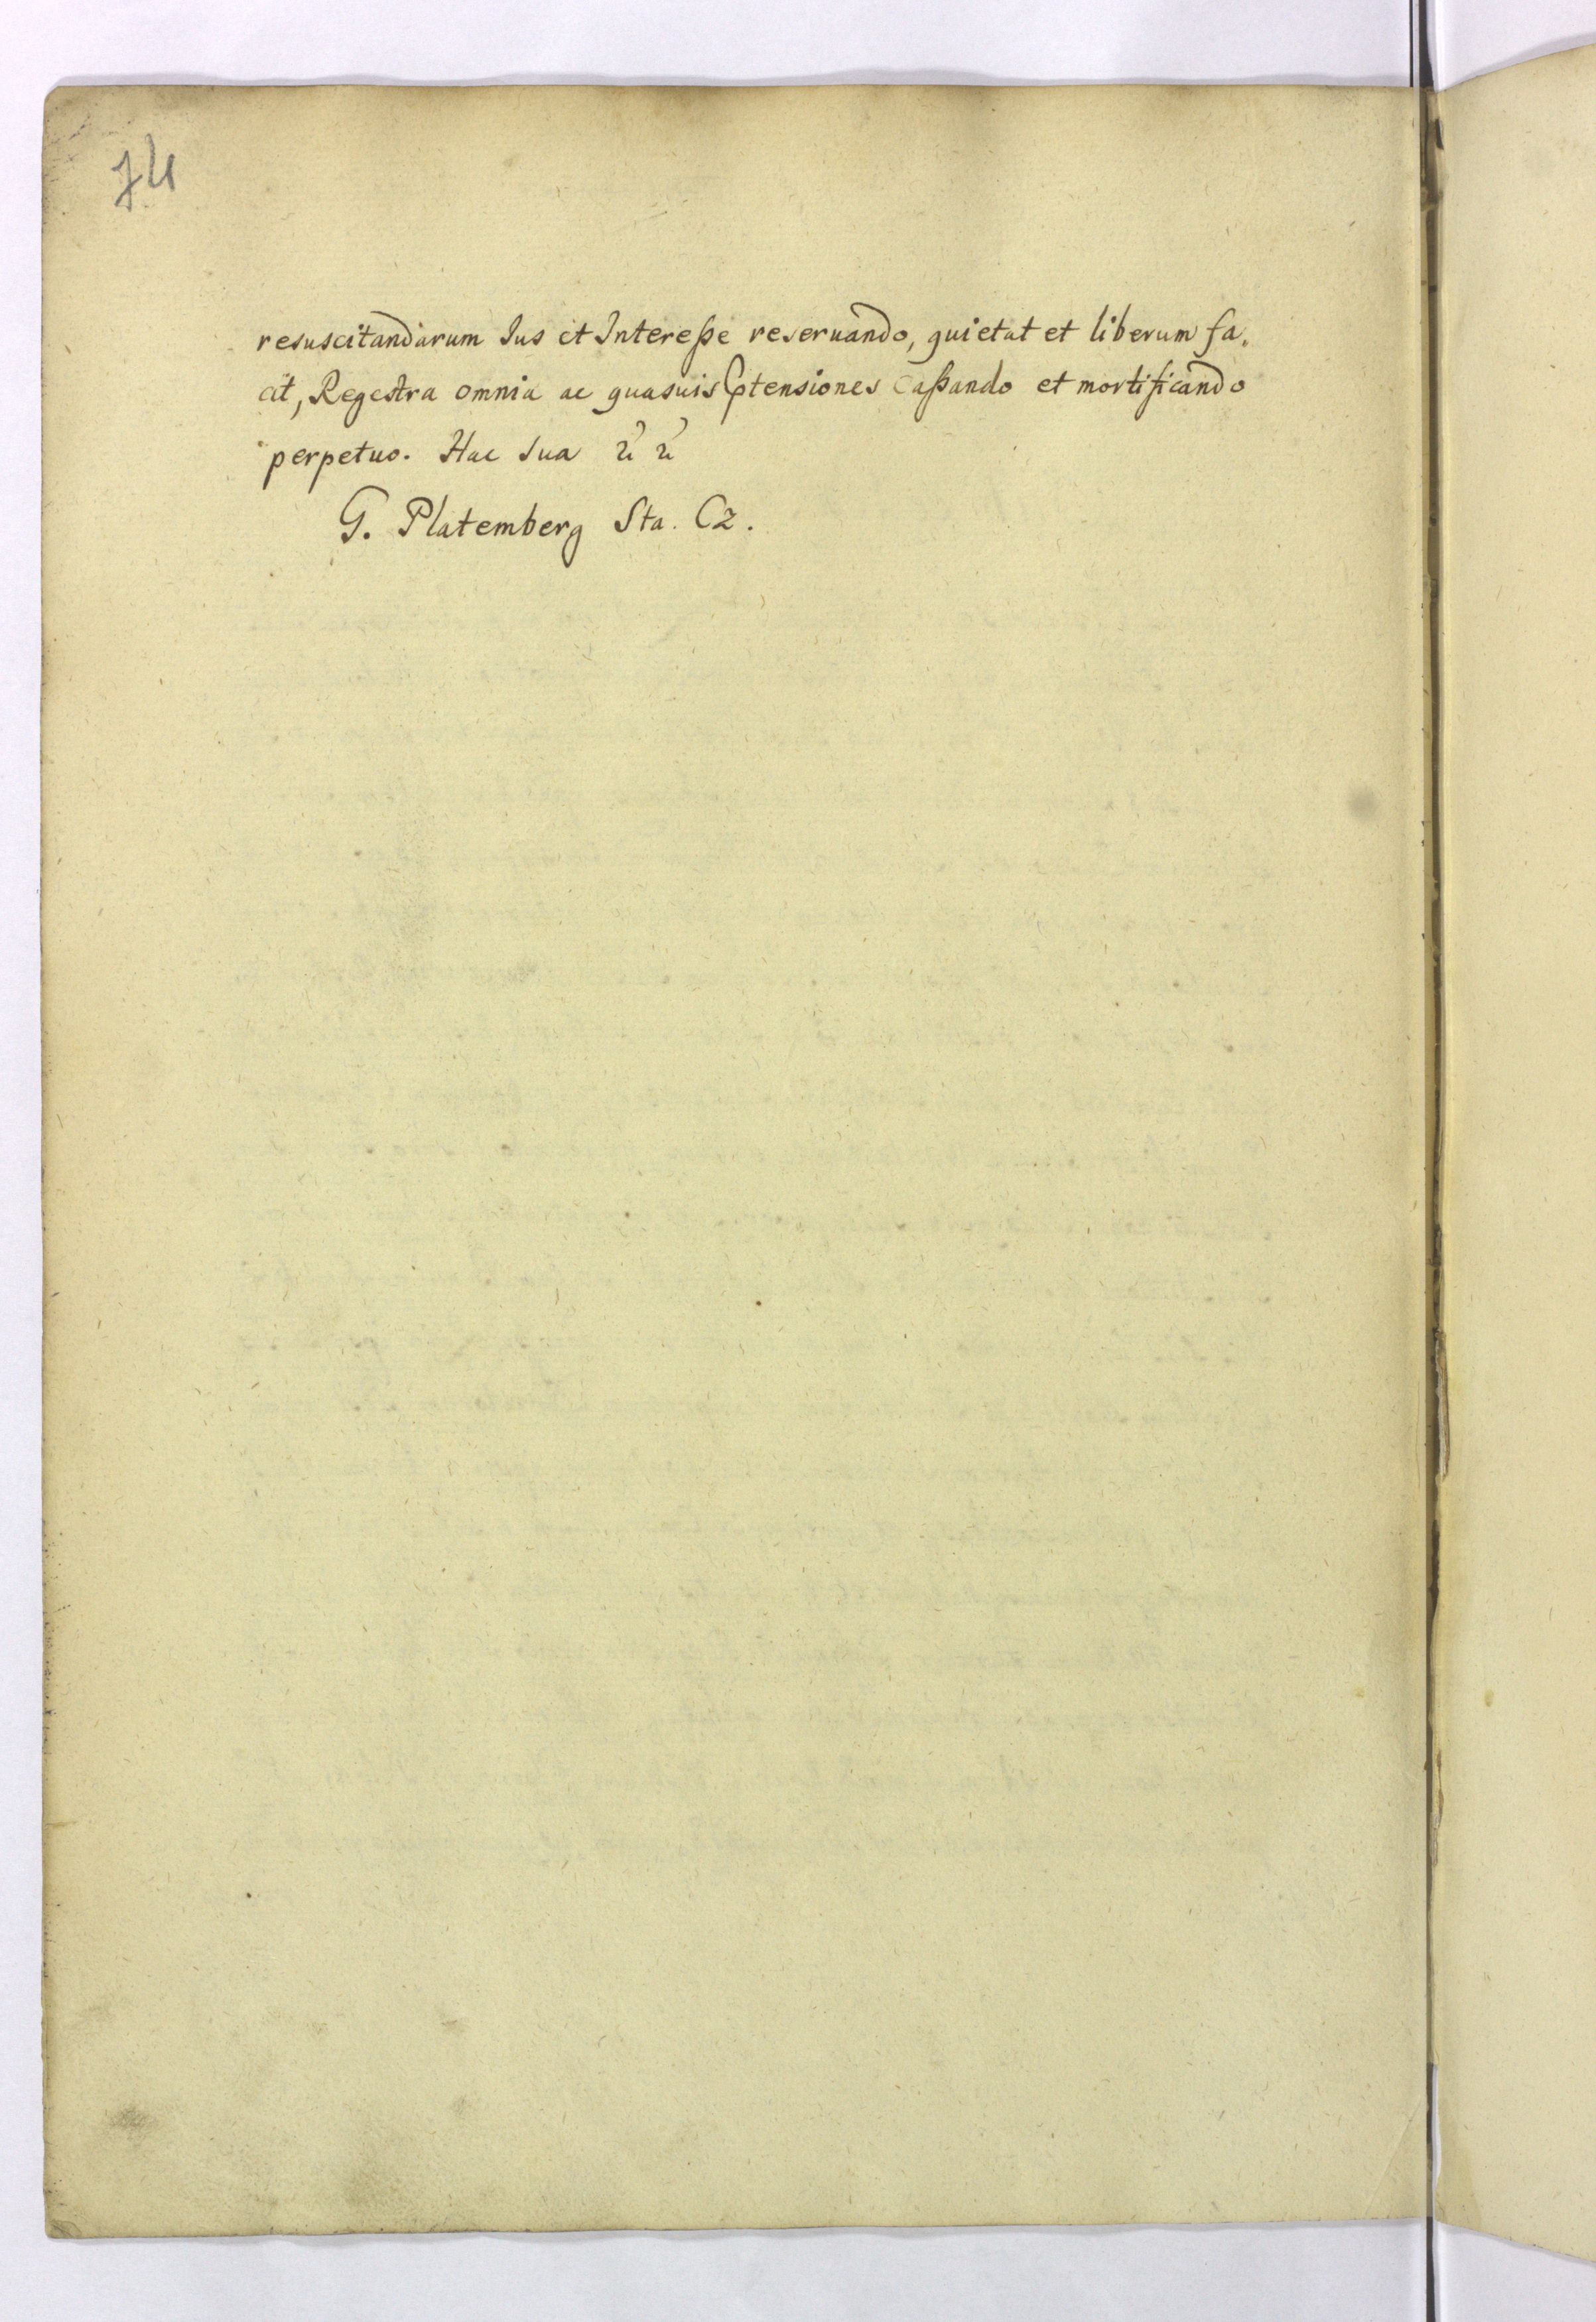 74
resuscitandarum Ius et Interesse reseruando, quietat et liberum fa.
cit, Regestra omnia ac quasuis Ptensiones Cassando et mortificando
perpetuo. Hac sua
G. Platemberg Sta. Cz.